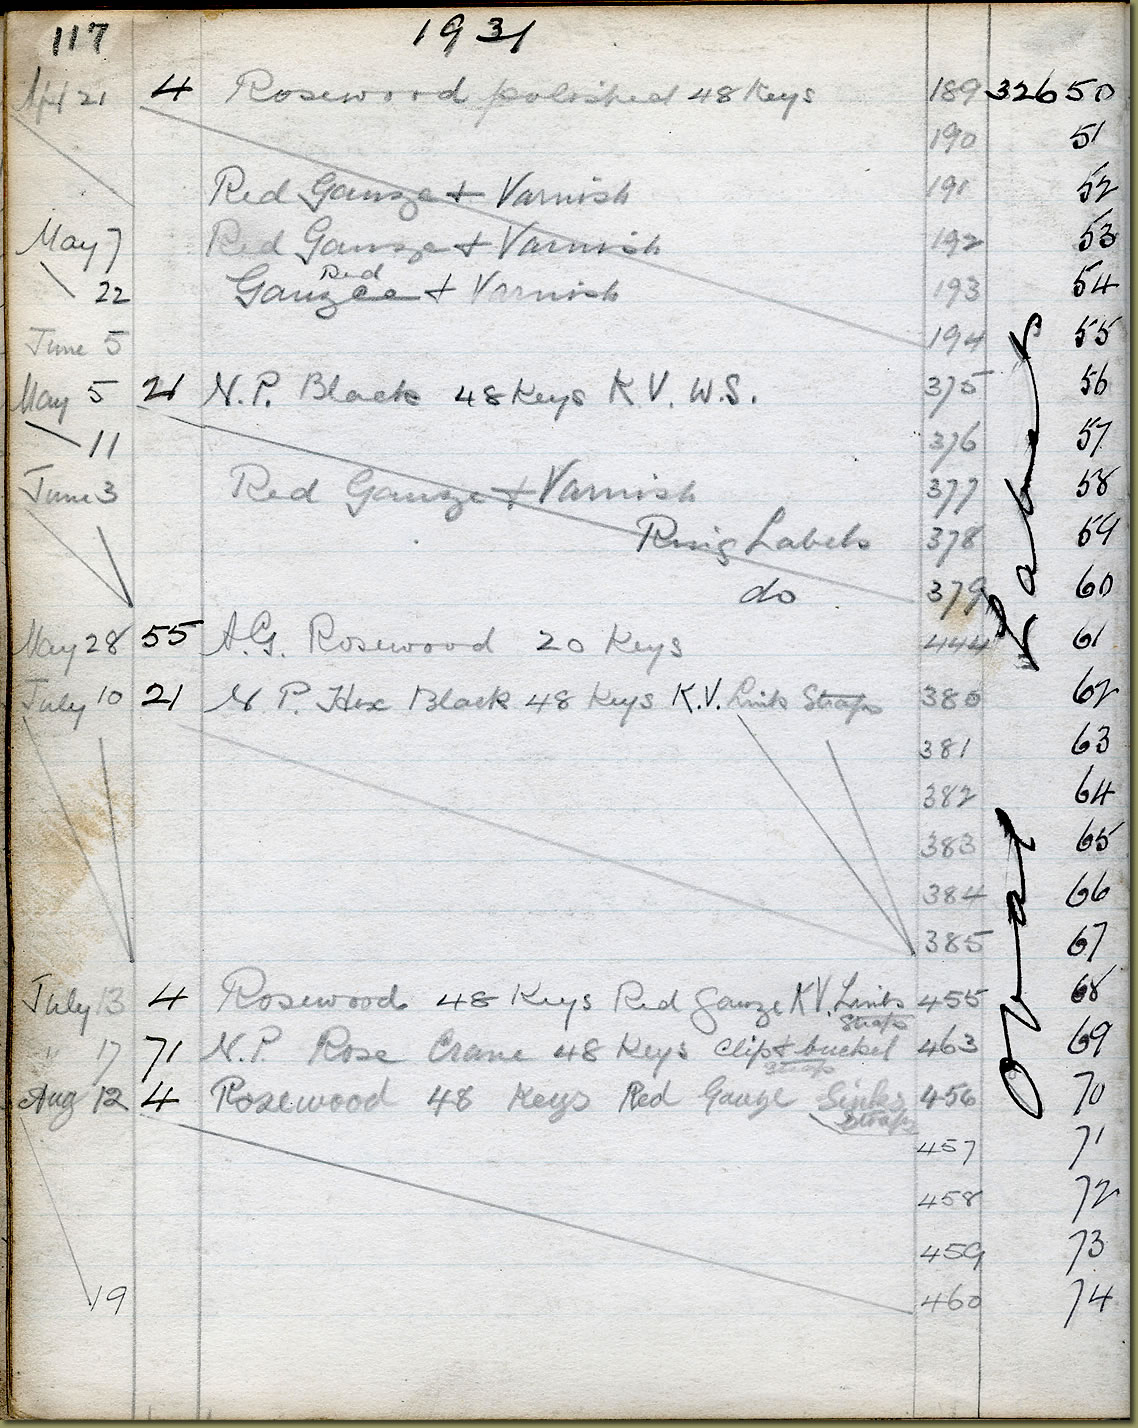 117 1931
Apl 21 4 Rosewood polished 48 Keys 189 32650
190 51
Red Gauze + Varnish 191 52
May 7 Red Gauze + Varnish 192 53
22 Gauze Red + Varnish 193 54
June 5 194 55
May 5 21 N.P. Black 48 Keys K.V. W.S. 375 56
11 376 57
June 3 Red Gauze + Varnish 377 58
Ring Labels 378 59
do 379 60
May 28 55 A.G. Rosewood 20 Keys 444 61
July 10 21 N.P. Hex Black 48 Keys K.V. Links Straps 380 62
381 63
382 64
383 65
384 66
385 67
July 13 4 Rosewood 48 Keys Red Gauze K.V. Links Straps 455 68
" 17 71 N.P. Rose Crane 48 Keys Clip & buckel Straps 463 69
Aug 12 4 Rosewood 48 Keys Red Gauze Links Straps 456 70
457 71
458 72
459 73
19 460 74
Oval Labels